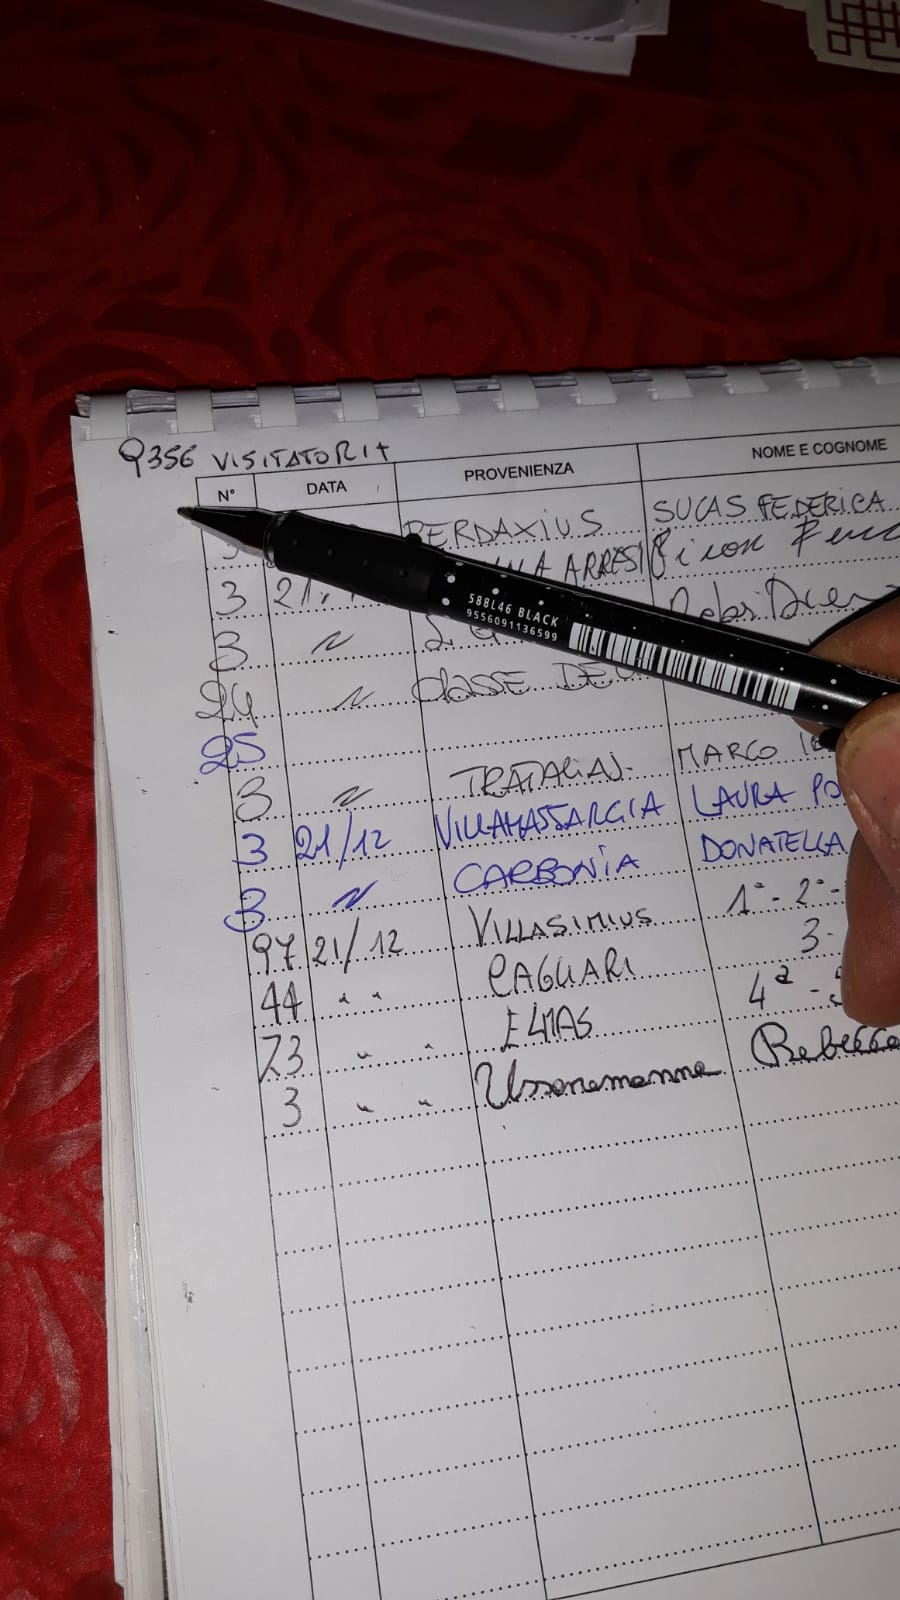 9356 VISITATORI +
N° DATA PROVENIENZA NOME E COGNOME
PERDAXIUS SUCAS FEDERICA
3 ARRESI
3 21
3 〃
24 〃 CLASSE DE
25
3 〃 TRATALIAS MARCO
3 21/12 VILLAMASSARGIA LAURA PO
3 〃 CARBONIA DONATELLA
97 21/12 VILLASIMIUS 1ª - 2ª -
44 〃 CAGLIARI 3-
73 〃 ELMAS 4ª -
3 〃 Ussaramanna Rebecca
588L46 BLACK
9556091136599